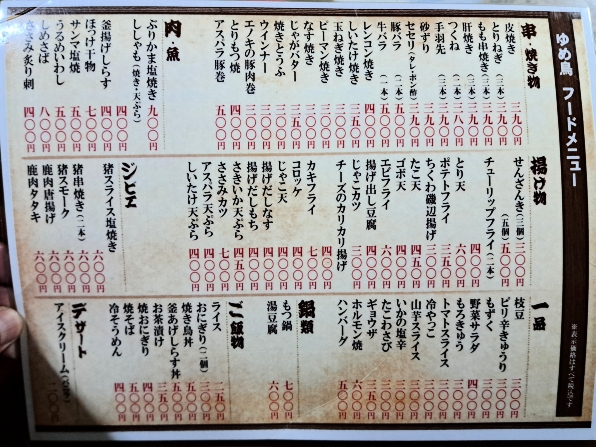 ゆめ鳥 フードメニュー
※表示価格はすべて税込です
串・焼き物
皮焼き(二本) 三九〇円
とりねぎ(二本) 三九〇円
もも串焼き(二本) 三九〇円
肝焼き(二本) 三九〇円
つくね(二本) 三八〇円
手羽先(二本) 三九〇円
砂ずり 三九〇円
セセリ(タレ・ポン酢) 三九〇円
豚バラ(二本) 三九〇円
牛バラ(二本) 五〇〇円
レンコン焼き 四〇〇円
しいたけ焼き 三五〇円
玉ねぎ焼き 三〇〇円
ピーマン焼き 三〇〇円
なす焼き 三〇〇円
じゃがバター 三五〇円
焼きとうふ 三〇〇円
ウインナー 三〇〇円
エノキの豚肉巻 三〇〇円
とりもつ焼 四〇〇円
アスパラ豚巻 五〇〇円
肉・魚
ぶりかま塩焼き 九〇〇円
ししゃも(焼き・天ぷら) 四〇〇円
釜揚げしらす 四〇〇円
ほっけ干物 七〇〇円
サンマ塩焼 五〇〇円
うるめいわし 五〇〇円
しめさば 八〇〇円
ささみ炙り刺 四〇〇円
揚げ物
せんざんき(三個) 三〇〇円
(五個) 五〇〇円
チューリップフライ(二本) 四〇〇円
とり天 六〇〇円
ポテトフライ 三五〇円
ちくわ磯辺揚げ 三〇〇円
たこ天 四五〇円
ゴボ天 四〇〇円
エビフライ 六〇〇円
揚げ出し豆腐 四〇〇円
じゃこカツ 三〇〇円
チーズのカリカリ揚げ 四〇〇円
カキフライ 七〇〇円
コロッケ 四〇〇円
じゃこ天 四〇〇円
揚げだしなす 四〇〇円
揚げだしもち 四〇〇円
さきいか天ぷら 四五〇円
ささみカツ 五〇〇円
アスパラ天ぷら 四五〇円
しいたけ天ぷら 四〇〇円
ジビエ
猪スライス塩焼き 六〇〇円
猪串焼き(二本) 六〇〇円
猪スモーク 六〇〇円
鹿肉唐揚げ 六〇〇円
鹿肉タタキ 六〇〇円
一品
枝豆 三〇〇円
ピリ辛きゅうり 三〇〇円
もずく 三〇〇円
野菜サラダ 四〇〇円
もろきゅう 三〇〇円
トマトスライス 三五〇円
冷やっこ 三〇〇円
山芋スライス 三〇〇円
いかの塩辛 三〇〇円
たこわさび 三〇〇円
ギョウザ 三〇〇円
ホルモン焼 六〇〇円
ハンバーグ 五〇〇円
鍋類
もつ鍋 七〇〇円
湯豆腐 六〇〇円
ご飯物
ライス 二五〇円
おにぎり(二個) 三〇〇円
焼き鳥丼 五〇〇円
釜あげしらす丼 五五〇円
お茶漬け 三五〇円
焼おにぎり 三五〇円
焼そば 五〇〇円
冷そうめん 四〇〇円
デザート
アイスクリーム(バニラ) 二〇〇円